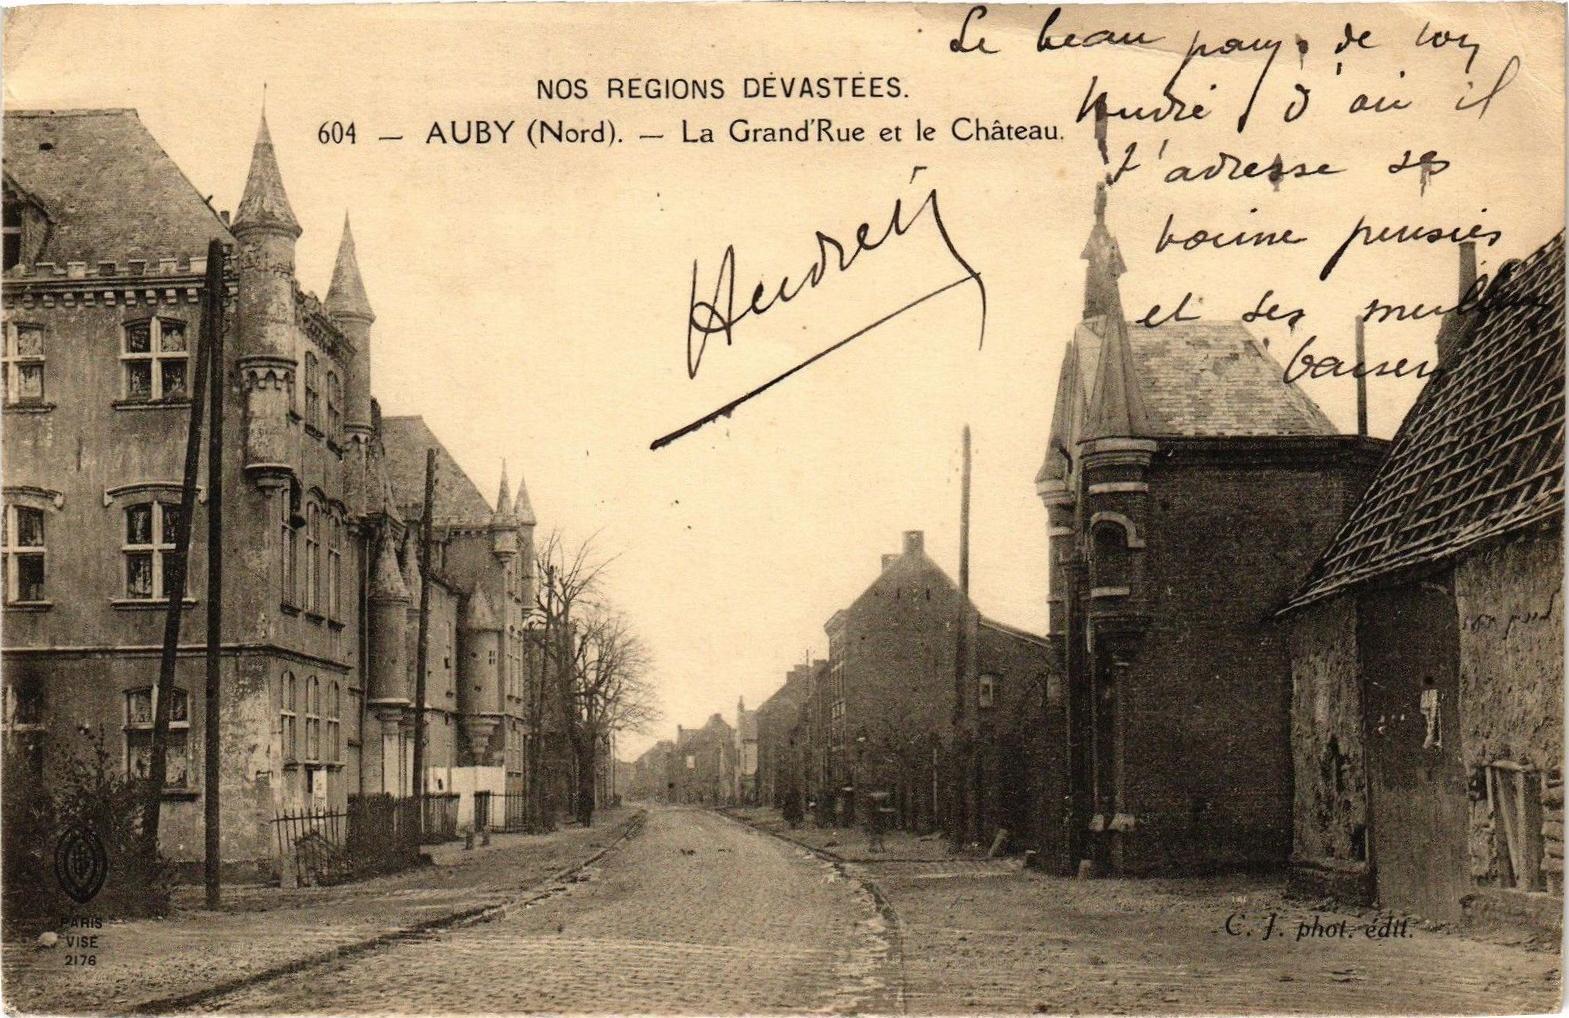 Le beau pays de ton
André d'où il
t'adresse ses
bonne pensées
et ses meilleurs
baisers
NOS REGIONS DÉVASTÉES.
604 — AUBY (Nord). — La Grand'Rue et le Château.
André
C. J. phot. édit.
PARIS
VISÉ
2176